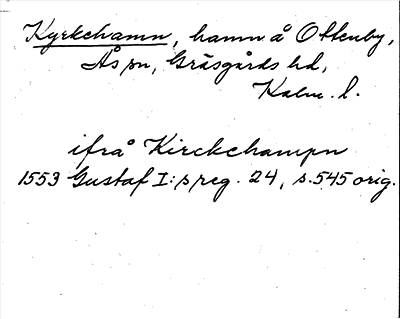 Kyrkehamn, hamn å Ottenby,
Ås sn, Gräsgårds hd,
Kalm. l.
ifrå Kirckehampn
1553 Gustaf I:s reg. 24, s. 545 orig.